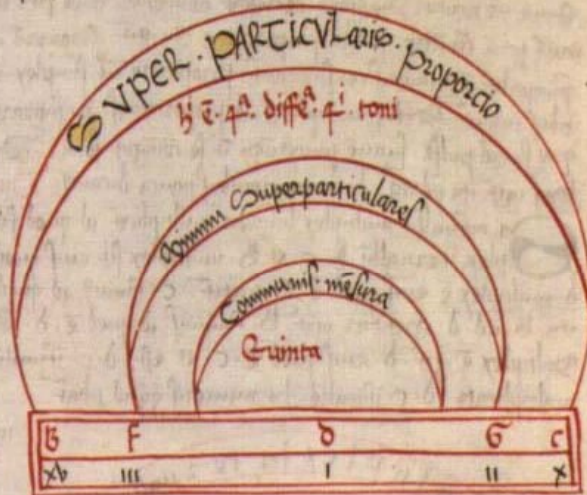 SUPER · PARTICULARIS · proporcio
h̄ ē · q̄ᵃ · diffeᵃ · qⁱ · toni
Superparticulares
Communis · mēsura
Quinta
B F D G C
xv III I II x